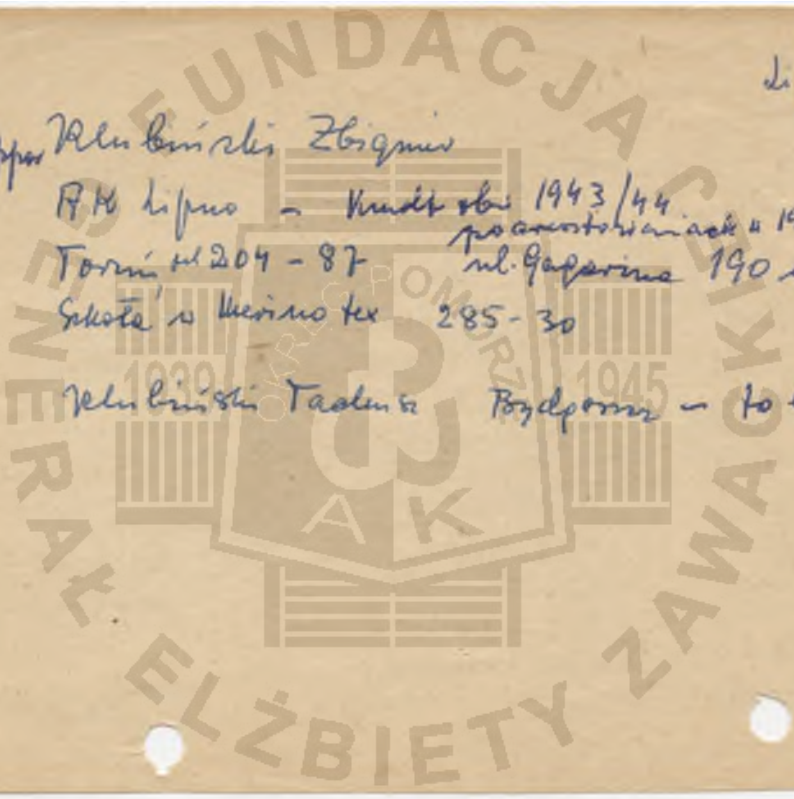 Li
Klubiński Zbigniew
AK Lipno - 1943/44
po aresztowaniach w 19
Toruń, tel 204-87 ul. Gagarina 190
Szkoła w Merinotex 285-30
Klubiński Tadeusz Bydgoszcz - to
FUNDACJA GENERAŁ ELŻBIETY ZAWACKIEJ
OKRĘG POMORZE
1939 1945
AK